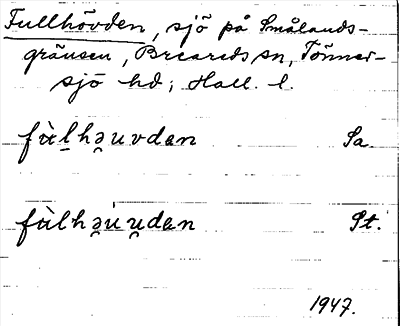 Fullhövden, sjö på Smålands-
gränsen, Breareds sn, Tönner-
sjö hd; Hall. l.
fùl̠hə̯uvdən Sa.
fùlhə̯úu̯dən St.
1947.